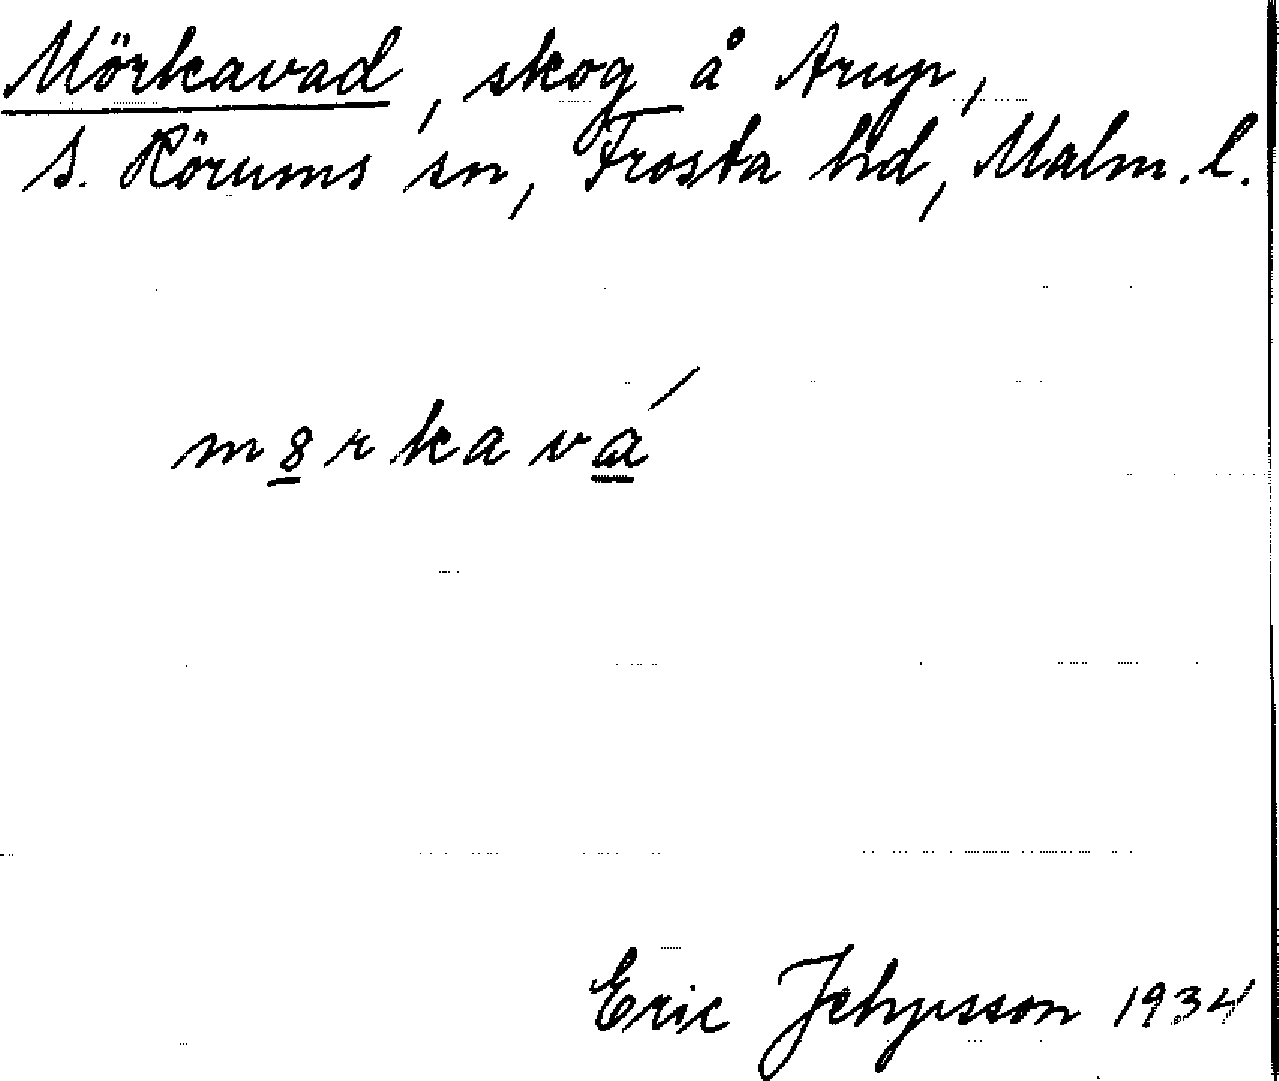 Mörkavad, skog å Arup,
S. Rörums sn, Frosta hd, Malm. l.
m8rkava ́
Eric Jehpsson 1934